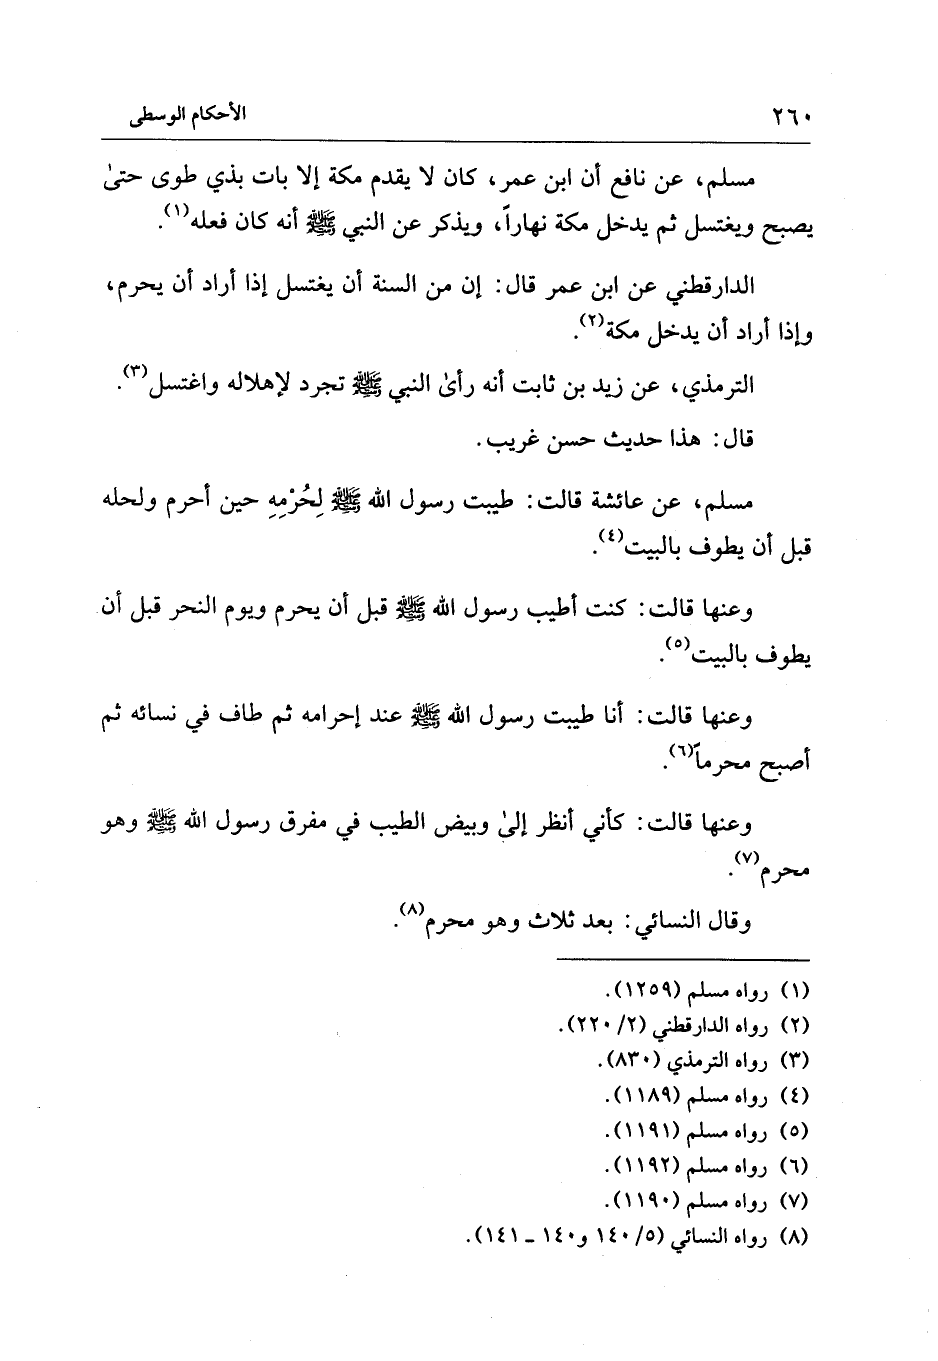 ٢٦٠ الأحكام الوسطى
مسلم، عن نافع أن ابن عمر، كان لا يقدم مكة إلا بات بذي طوى حتىٰ
يصبح ويغتسل ثم يدخل مكة نهاراً، ويذكر عن النبي ﷺ أنه كان فعله(١).
الدارقطني عن ابن عمر قال: إن من السنة أن يغتسل إذا أراد أن يحرم،
وإذا أراد أن يدخل مكة(٢).
الترمذي، عن زيد بن ثابت أنه رأىٰ النبي ﷺ تجرد لإهلاله واغتسل(٣).
قال: هذا حديث حسن غريب.
مسلم، عن عائشة قالت: طيبت رسول الله ﷺ لِحُرْمِهِ حين أحرم ولحله
قبل أن يطوف بالبيت(٤).
وعنها قالت: كنت أطيب رسول الله ﷺ قبل أن يحرم ويوم النحر قبل أن
يطوف بالبيت(٥).
وعنها قالت: أنا طيبت رسول الله ﷺ عند إحرامه ثم طاف في نسائه ثم
أصبح محرماً(٦).
وعنها قالت: كأني أنظر إلىٰ وبيض الطيب في مفرق رسول الله ﷺ وهو
محرم(٧).
وقال النسائي: بعد ثلاث وهو محرم(٨).
(١) رواه مسلم (١٢٥٩).
(٢) رواه الدارقطني (٢/ ٢٢٠).
(٣) رواه الترمذي (٨٣٠).
(٤) رواه مسلم (١١٨٩).
(٥) رواه مسلم (١١٩١).
(٦) رواه مسلم (١١٩٢).
(٧) رواه مسلم (١١٩٠).
(٨) رواه النسائي (٥/ ١٤٠ و١٤٠ ـ ١٤١).